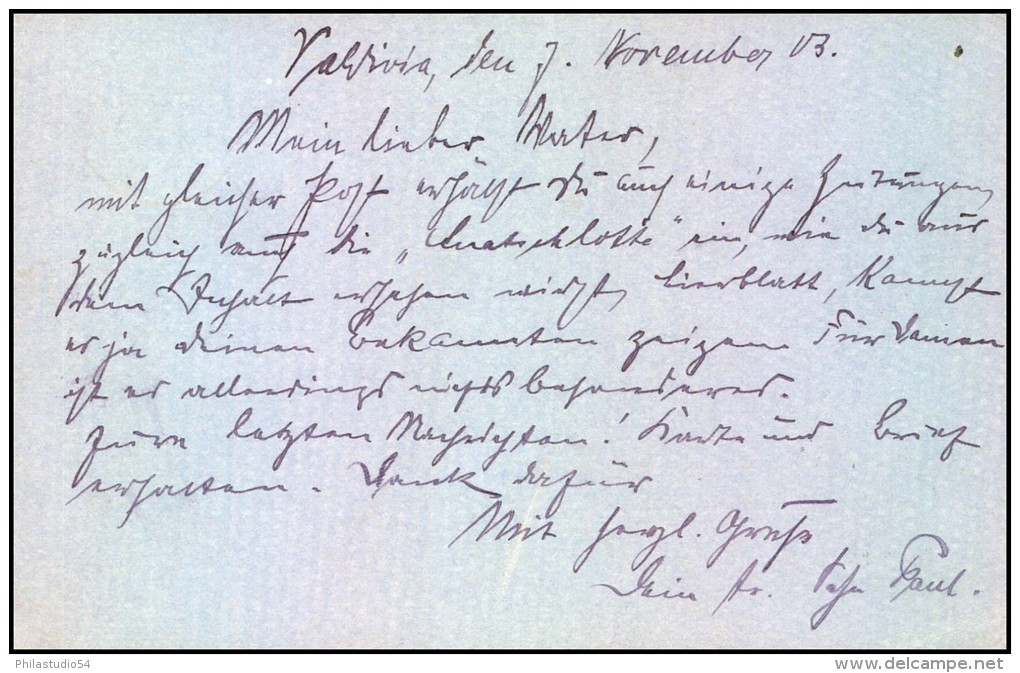 Valdivia, den 7. November 03.
Mein lieber Vater,
mit gleicher Post erhälst du auch einige Zeitungen,
zugleich auch die " " ein, wie du aus
dem Inhalt ersehen wirst, Bierblatt, Kannst
es ja deinen Bekannten zeigen Für Damen
ist es allerdings nichts besonderes.
Eure letzten Nachrichten! Karte und Brief
erhalten. Dank dafür
Mit herzl. Gruße
Dein tr. Sohn Paul.
Philastudio54
www.delcampe.net